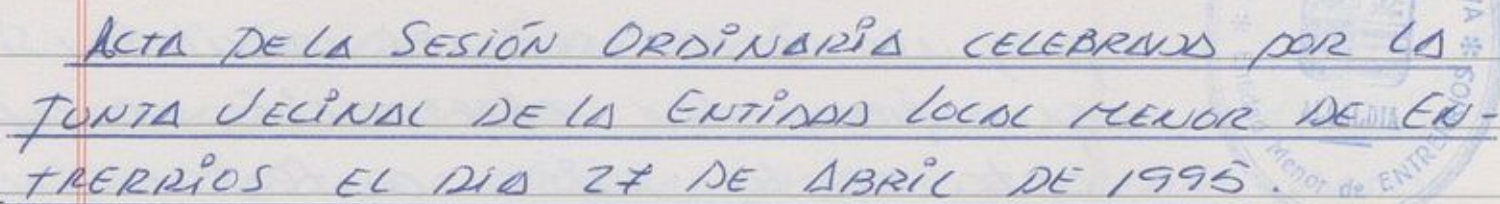 ACTA DE LA SESIÓN ORDINARIA CELEBRADA POR LA
JUNTA VECINAL DE LA ENTIDAD LOCAL MENOR DE EN-
TRERRIOS EL DIA 27 DE ABRIL DE 1995.
Menor de ENTRE